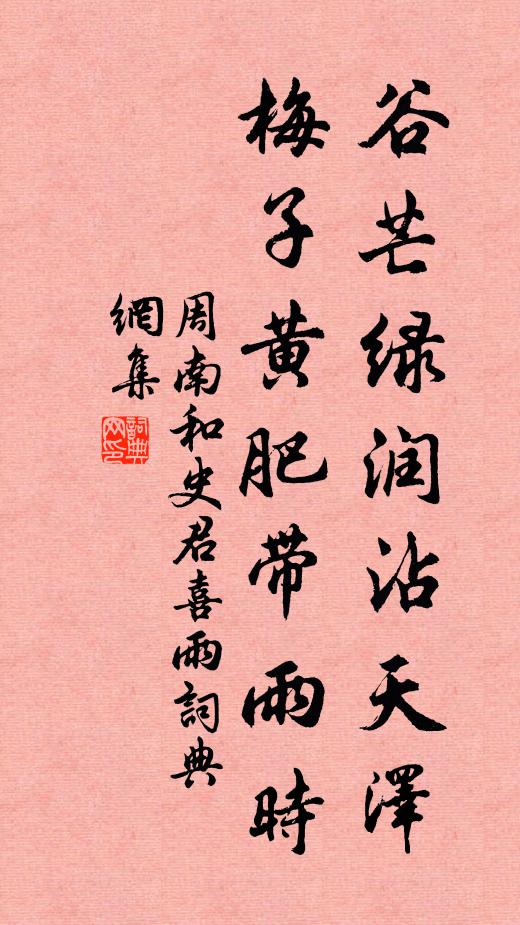 谷芒绿润沾天澤
梅子黄肥带雨時
周南和史君喜雨詞典
網集
詞典
网印